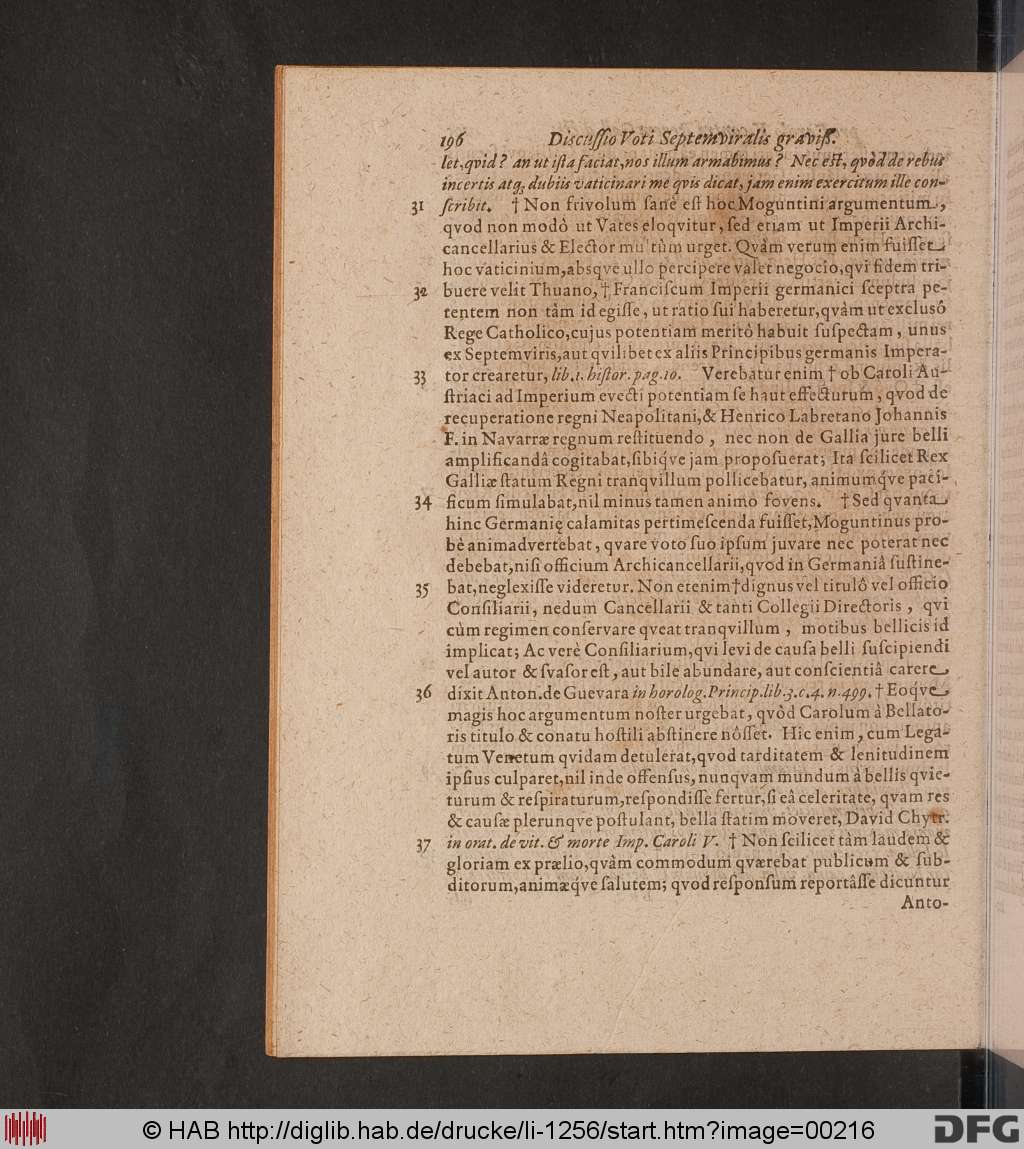 196 Discussio Voti Septemviralis graviss.
let, qvid? an ut ista faciat, nos illum armabimus? Nec est, qvòd de rebus
incertis atq; dubiis vaticinari me qvis dicat, jam enim exercitum ille con-
31 scribit. † Non frivolum sanè est hoc Moguntini argumentum,
qvod non modò ut Vates eloqvitur, sed etiam ut Imperii Archi-
cancellarius & Elector urget. Qvàm verum enim fuisset
hoc vaticinium, absqve ullo percipere valet negocio, qvi fidem tri-
32 buere velit Thuano, † Franciscum Imperii germanici sceptra pe-
tentem non tàm id egisse, ut ratio sui haberetur, qvàm ut exclusô
Rege Catholico, cujus potentiam meritò habuit suspectam, unus
ex Septemviris, aut qvilibet ex aliis Principibus germanis Impera-
33 tor crearetur, lib. 1. histor. pag. 10. Verebatur enim † ob Caroli Au-
striaci ad Imperium evecti potentiam se haut effecturum, qvod de
recuperatione regni Neapolitani, & Henrico Labretano Johannis
F. in Navarræ regnum restituendo, nec non de Gallia jure belli
amplificandâ cogitabat, sibiq́ve jam proposuerat; Ita scilicet Rex
Galliæ statum Regni tranqvillum pollicebatur, animumq́ve paci-
34 ficum simulabat, nil minus tamen animo fovens. † Sed qvanta
hinc Germanię calamitas pertimescenda fuisset, Moguntinus pro-
bè animadvertebat, qvare voto suo ipsum juvare nec poterat nec
debebat, nisi officium Archicancellarii, qvod in Germaniâ sustine-
35 bat, neglexisse videretur. Non etenim † dignus vel titulô vel officio
Consiliarii, nedum Cancellarii & tanti Collegii Directoris, qvi
cùm regimen conservare qveat tranqvillum, motibus bellicis id
implicat; Ac verè Consiliarium, qvi levi de causa belli suscipiendi
vel autor & svasor est, aut bile abundare, aut conscientiâ carere
36 dixit Anton. de Guevara in horolog. Princip. lib. 3. c. 4. n. 499. † Eoqve
magis hoc argumentum noster urgebat, qvòd Carolum à Bellato-
ris titulo & conatu hostili abstinere nôsset. Hic enim, cum Lega-
tum Venetum qvidam detulerat, qvod tarditatem & lenitudinem
ipsius culparet, nil inde offensus, nunqvam mundum à bellis qvie-
turum & respiraturum, respondisse fertur, si eâ celeritate, qvam res
& causæ plerunqve postulant, bella statim moveret, David Chytr.
37 in orat. de vit. & morte Imp. Caroli V. † Non scilicet tàm laudem &
gloriam ex prælio, qvàm commodum qværebat publicum & sub-
ditorum, animæq́ve salutem; qvod responsum reportâsse dicuntur
Anto-
© HAB http://diglib.hab.de/drucke/li-1256/start.htm?image=00216
DFG